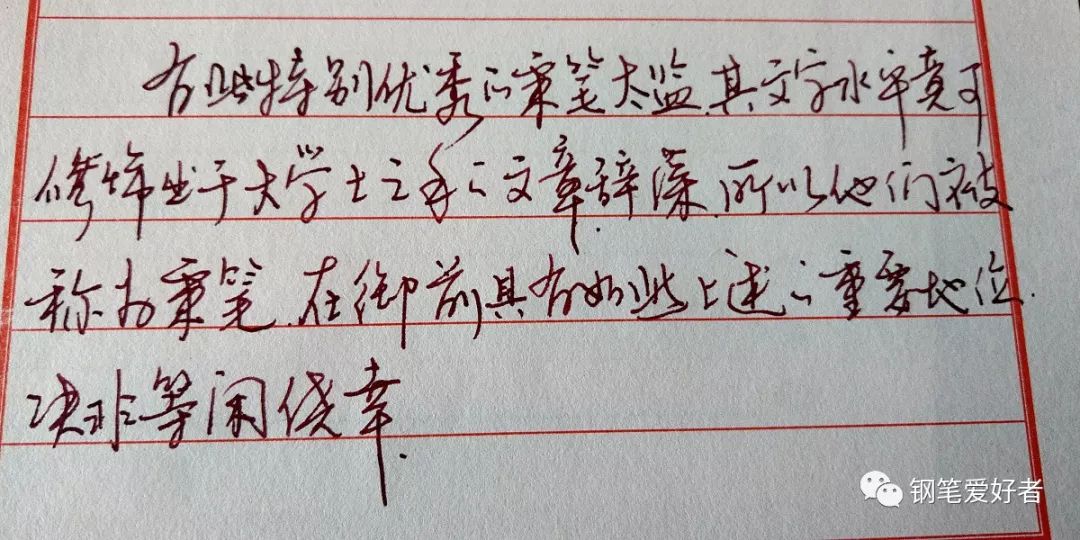 有些特别优秀的秉笔太监,其文字水平竟可
修饰出于大学士之手之文章辞藻.所以他们被
称为秉笔.在御前具有如此上述的重要地位.
决非等闲侥幸.
钢笔爱好者